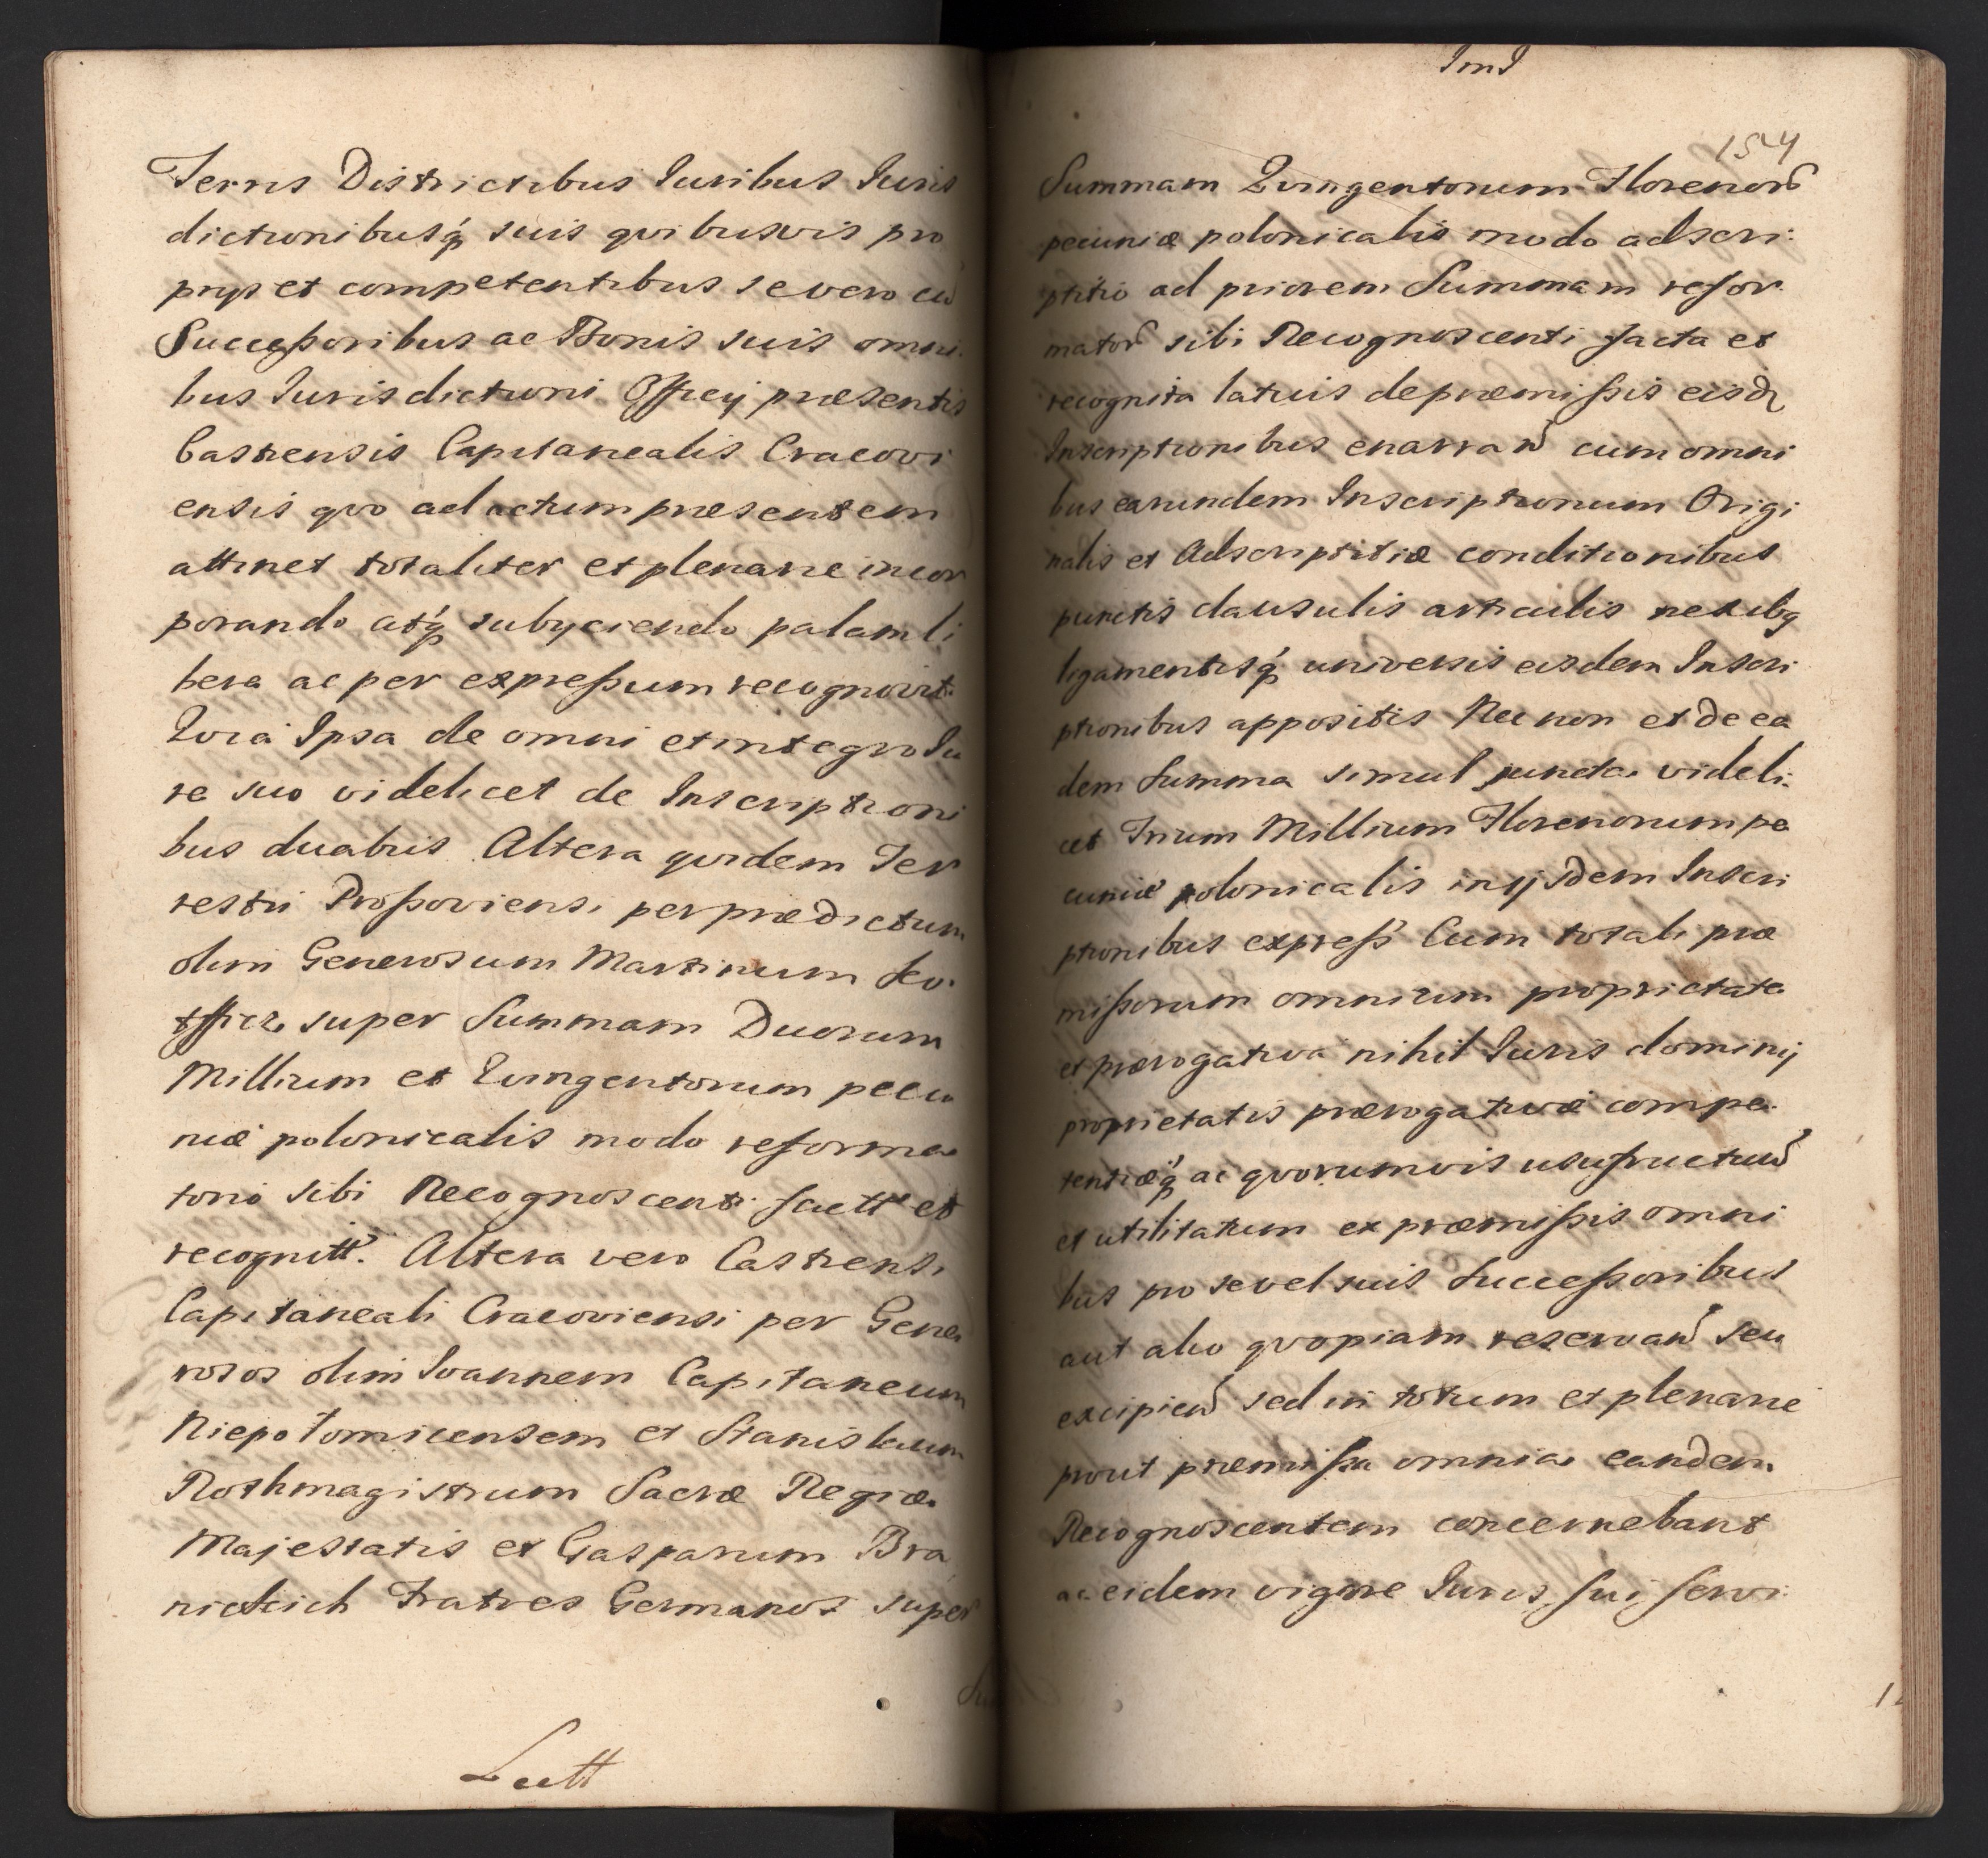 Terris Districtibus Iuribus Iuris
dictionibusq́ suis qvibusvis pro
prys et competentibus se vero cū
Succeßoribus ac Bonis suis omni
bus Iurisdictioni Officy præsentis
Castrensis Capitanealis Cracovi
ensis qvo ad actum præsentem
attinet totaliter et plenarie incor
porando atq́ subyciendo palam li
bera ac per expreßum recognovit.
Qvia Ipsa de omni et integro Iu
re suo videlicet de Inscriptioni
bus duabus Altera qvidem Ter
restri Proßoviensi per prædictum
olim Generosum Martinum
super Summam Duorum
Millium et Qvingentorum pecu
niæ polonicalis modo reforma
torio sibi Recognoscenti factt et
recognitt. Altera vero Castrensi
Capitaneali Cracoviensi per Gene
rosos olim Ioannem Capitaneum
Niepotomicensem et Stanislaum
Rothmagistrum Sacræ Regiæ
Majestatis et Gasparum Bra
nickich Fratres Germanos super
Lett
154
Summam Qvingentorum Florenorū
pecuniæ polonicalis modo adscri:
ptitio ad priorem Summam refor
mator sibi Recognoscenti facta et
recognita latius de præmißis eisd
Inscriptionibus enarran cum omni
bus earundem Inscriptionum Origi
nalis et Adscriptitiæ conditionibus
punctis clausulis articulis nexibq
ligamentisq́ universis eisdem Inscri
ptionibus appositis Nec non et de ea
dem Summa simul juncta videli:
cet Trium Millium Florenorum pe
cuniæ polonicalis in ijsdem Inscri
ptionibus expreß Cum totali præ
mißorum omnium proprietate
et prærogativa nihil Iuris dominij
proprietatis prærogativæ compe
tentiæq́ ac qvorumvis usufructuū
et utilitatum ex præmißis omni
bus pro se vel suis Succeßoribus
aut alio qvopiam reservan seu
excipien sed in totum et plenarie
prout præmißa omnia eandem
Recognoscentem concernebant
ac eidem vigore Iuris sui servi